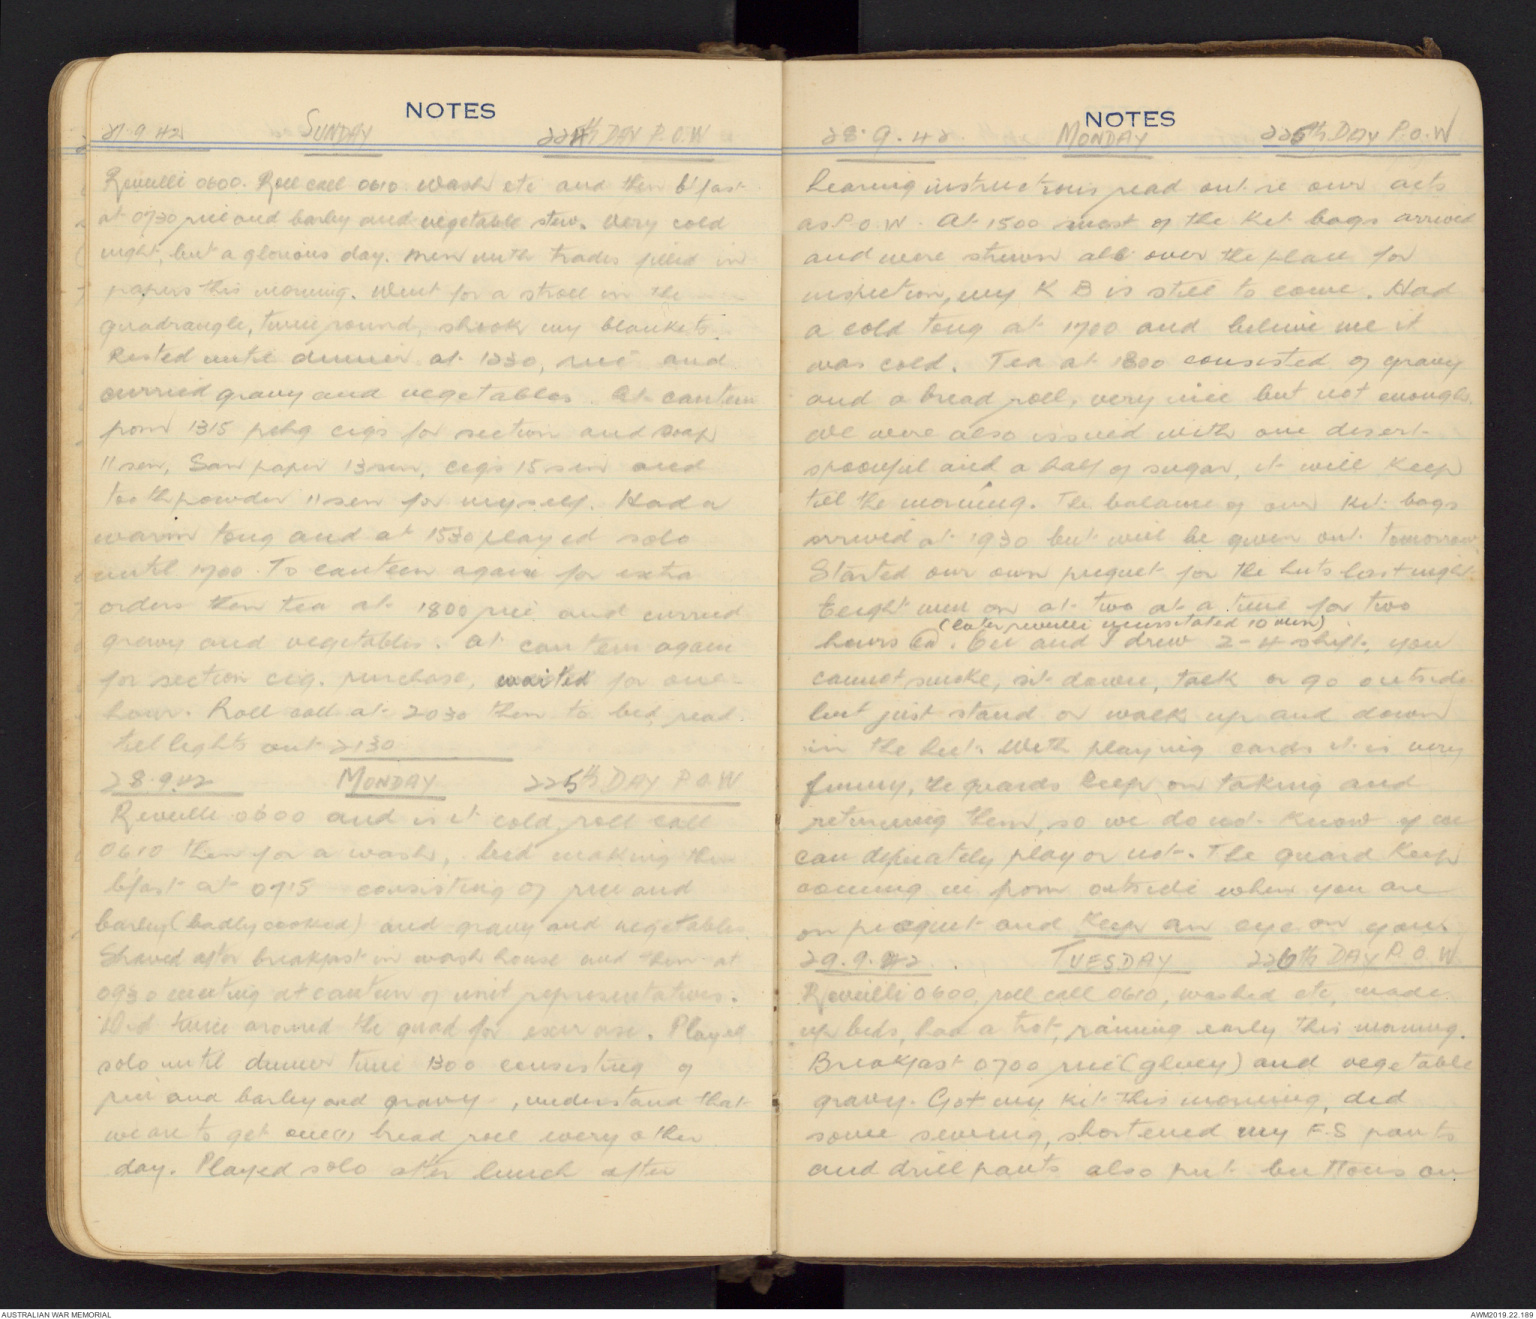 NOTES
27.9.42 SUNDAY 224th DAY P.O.W
Reveilli 0600. Roll call 0610 wash etc and then b'fast
at 0730 rice and barley and vegetable stew. Very cold
night, but a glorious day. Men with trades filled in
papers this morning. Went for a stroll in the
quadrangle, twice round, shook my blankets.
Rested until dinner at 1230, rice and
curried gravy and vegetables. At canteen
from 1315 pchg cigs for section and soap
11 sen, San paper 13 sen, cigs 15 sen and
toothpowder 11 sen for myself. Had a
warm tong and at 1530 played solo
until 1700. To canteen again for extra
orders then tea at 1800 rice and curried
gravy and vegetables. At canteen again
for section cig. purchase, waited for one
hour. Roll call at 2030 then to bed, read
till lights out 2130
28.9.42 MONDAY 225th DAY P.O.W
Reveilli 0600 and is it cold, roll call
0610 then for a wash, bed making then
b'fast at 0715 consisting of rice and
barley (badly cooked) and gravy and vegetables.
Shaved after breakfast in wash house and then at
0930 meeting at canteen of unit representatives.
Did twice around the quad for exercise. Played
solo until dinner time 1300 consisting of
rice and barley and gravy, understand that
we are to get one bread roll every other
day. Played solo after lunch after
NOTES
28.9.42 MONDAY 225th DAY P.O.W
hearing instructions read out re our acts
as P.O.W. At 1500 most of the kit bags arrived
and were strewn all over the place for
inspection, my K B is still to come. Had
a cold tong at 1700 and believe me it
was cold. Tea at 1800 consisted of gravy
and a bread roll, very nice but not enough.
We were also issued with one desert
spoonful and a half of sugar, it will keep
till the morning. The balance of our kit bags
arrived at 1930 but will be given out tomorrow
Started our own picquet for the huts last night.
Eeight men on at two at a time for two
(later reveilli necessitated 10 men)
hours Ea. Cec and I drew 2-4 shift, you
cannot smoke, sit down, talk or go outside
but just stand or walk up and down
in the hut. With playing cards it is very
funny, the guards keep on taking and
returning them, so we do not know if we
can definately play or not. The guard keep
coming in from outside when you are
on picquet and keep an eye on you.
29.9.42. TUESDAY 226th DAY P.O.W
Reveilli 0600, roll call 0610, washed etc, made
up beds, had a trot, raining early this morning.
Breakfast 0700 rice (gluey) and vegetable
gravy. Got my kit this morning, did
some sewing, shortened my F.S pants
and drill pants also put buttons on
AUSTRALIAN WAR MEMORIAL
AWM2019.22.189